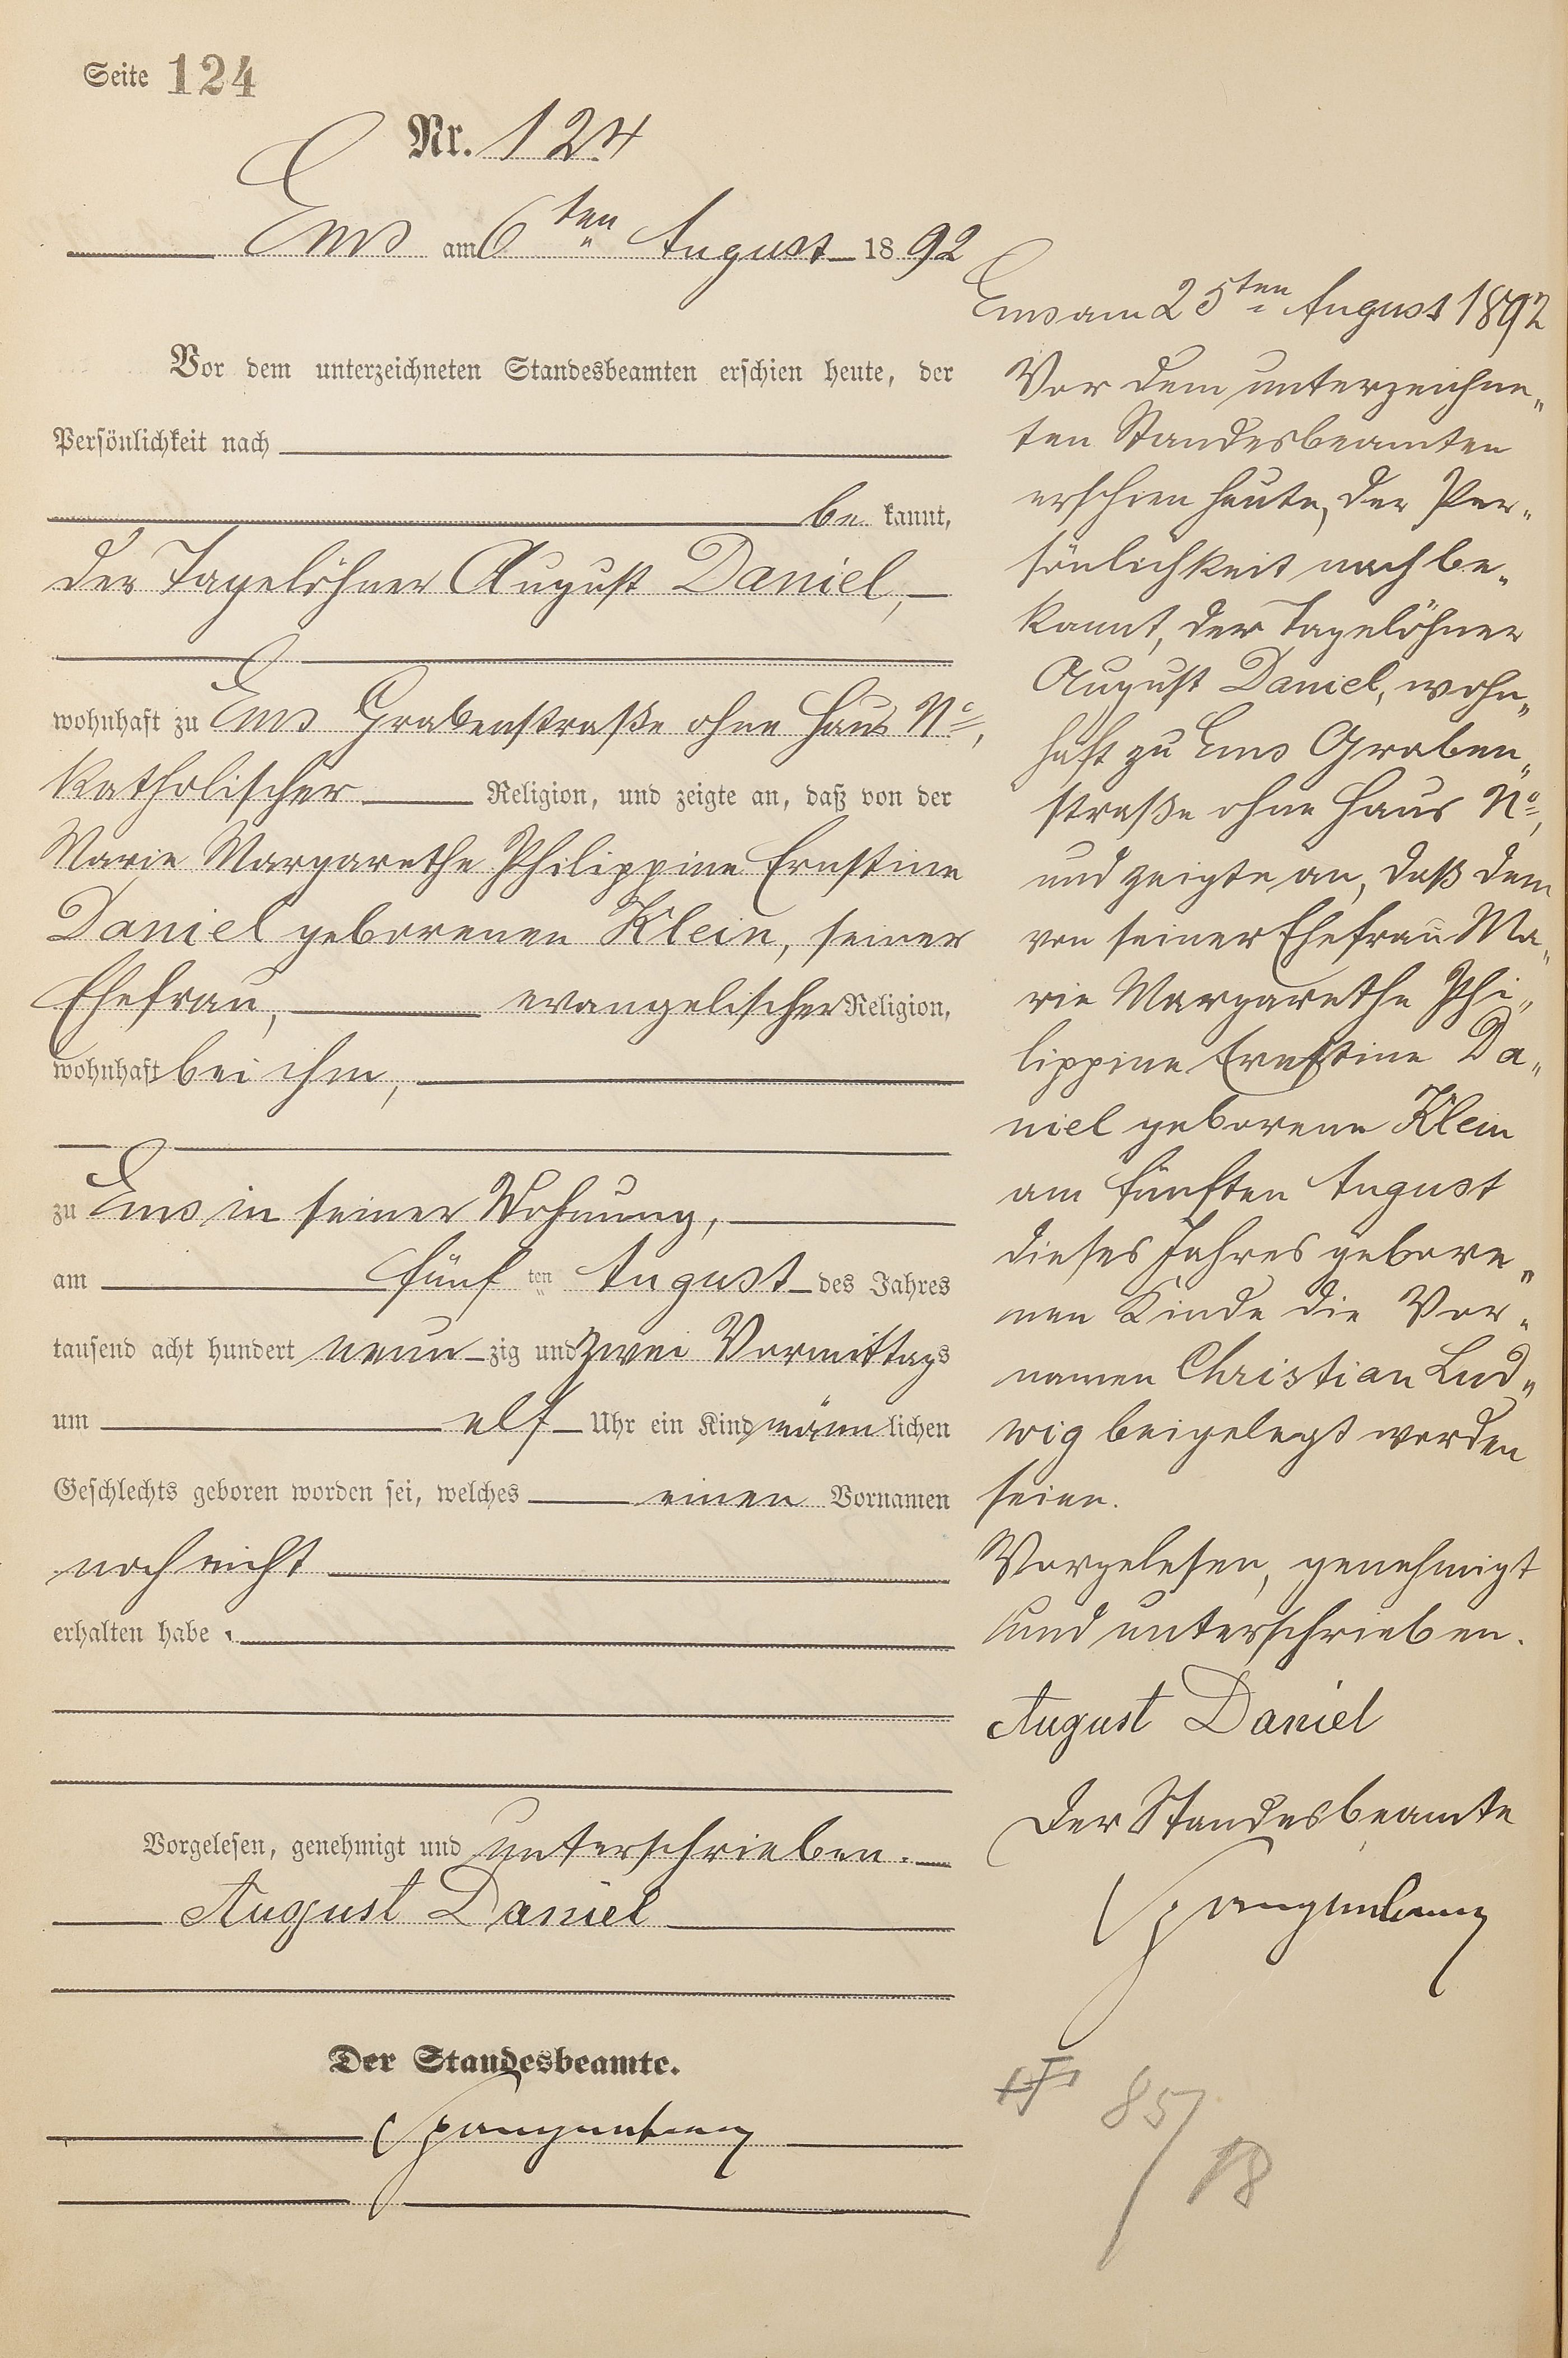 Seite 124
Nr. 124
Ems am 6ten August 1892
Vor dem unterzeichneten Standesbeamten erschien heute, der
Persönlichkeit nach
be kannt,
der Tagelöhner August Daniel,
wohnhaft zu Ems Grabenstraße ohne Haus No,
katholischer Religion, und zeigte an, daß von der
Marie Margarethe Philippine Ernstine
Daniel geborenen Klein, seiner
Ehefrau, evangelischer Religion,
wohnhaft bei ihm,
zu Ems in seiner Wohnung,
am fünf ten August des Jahres
tausend acht hundert neun zig und zwei Vormittags
um elf Uhr ein Kind männ lichen
Geschlechts geboren worden sei, welches einen Vornamen
noch nicht
erhalten habe.
Vorgelesen, genehmigt und unterschrieben.
August Daniel
Der Standesbeamte.
Spangenberg
Ems am 25ten August 1892
Vor dem unterzeichne„
ten Standesbeamten
erschien heute, der Per„
sönlichkeit nach be„
kannt, der Tagelöhner
August Daniel, wohn„
haft zu Ems Graben„
straße ohne Haus No,
und zeigte an, daß dem
von seiner Ehefrau Ma„
rie Margarethe Phi„
lippine Ernstine Da„
niel geborene Klein
am fünften August
dieses Jahres gebore„
nen Kinde die Vor„
namen Christian Lud„
wig beigelegt worden
seien.
Vorgelesen, genehmigt
und unterschrieben.
August Daniel
Der Standesbeamte
Spangenberg
85/18